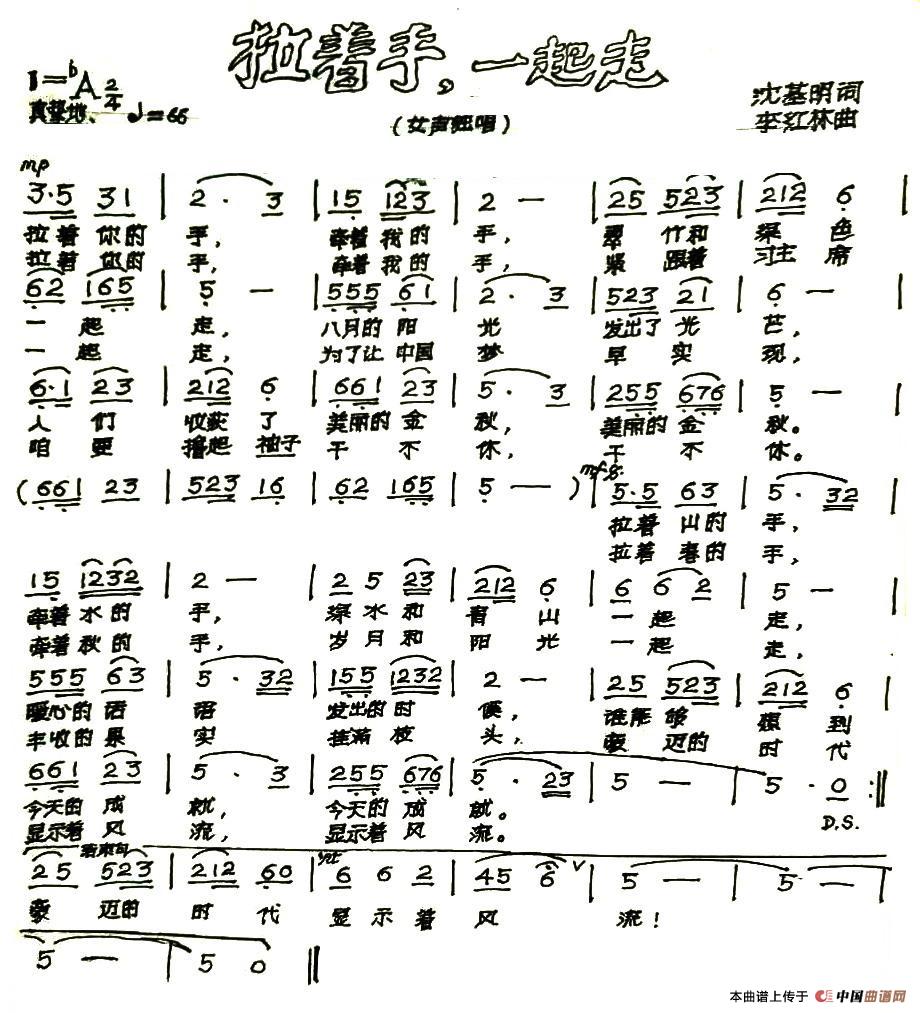 拉着手，一起走
1=♭A 2/4
真挚地、♩=66
(女声独唱)
沈基明词
李红林曲
mp
3·5 31 | 2 · 3 | 15 123 | 2 — | 25 523 | 212 6
拉着 你的 手， 牵着 我的 手， 翠 竹和 绿 色
拉着 你的 手， 牵着 我的 手， 紧 跟着 习主 席
62 165 | 5 — | 555 61 | 2 · 3 | 523 21 | 6 —
一 起 走， 八月的 阳 光 发出了 光 芒，
一 起 走， 为了让 中国 梦 早 实 现，
6·1 23 | 212 6 | 661 23 | 5 · 3 | 255 676 | 5 —
人 们 收获 了 美丽的 金 秋， 美丽的 金 秋。
咱 更 撸起 袖子 干 不 休， 干 不 休。
(661 23 | 523 16 | 62 165 | 5 —) | mf 5·5 63 | 5 · 32
拉着 山的 手，
拉着 春的 手，
15 1232 | 2 — | 2 5 23 | 212 6 | 6 6 2 | 5 —
牵着 水的 手， 绿 水 和 青 山 一 起 走，
牵着 秋的 手， 岁 月 和 阳 光 一 起 走，
555 63 | 5 · 32 | 155 1232 | 2 — | 25 523 | 212 6
暖心的 话 语 发出的 时 候， 谁能 够 想 到
丰收的 果 实 挂满 枝 头， 豪 迈的 时 代
661 23 | 5 · 3 | 255 676 | 5 · 23 | 5 — | 5 · 0 :‖
今天的 成 就， 今天的 成 就。
显示着 风 流， 显示着 风 流。 D.S.
结束句
25 523 | 212 60 | 6 6 2 | 45 6 ∨ | 5 — | 5 —
豪 迈的 时 代 显 示 着 风 流！
5 — | 5 0 ‖
本曲谱上传于 中国曲谱网